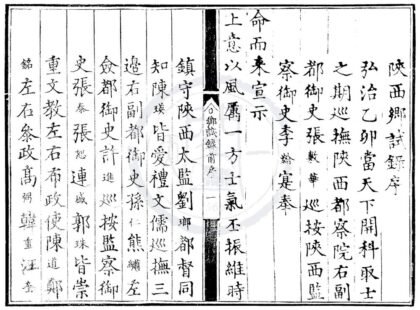 陝西鄉試錄序
弘治乙卯當天下開科取士
之期巡撫陝西都察院右副
都御史張敷華巡按陝西監
察御史李翰寔奉
命而來宣示
上意以風厲一方士氣丕振維時
鄉試錄前序
一
鎮守陝西太監劉瑯都督同
知陳瑛皆愛禮文儒巡撫三
邊右副都御史孫仁熊繡左
僉都御史許進巡按監察御
史張泰張恕連盛郭珠皆崇
重文教左右布政使陳道鄭
銘左右參政高弼韓重汪奎